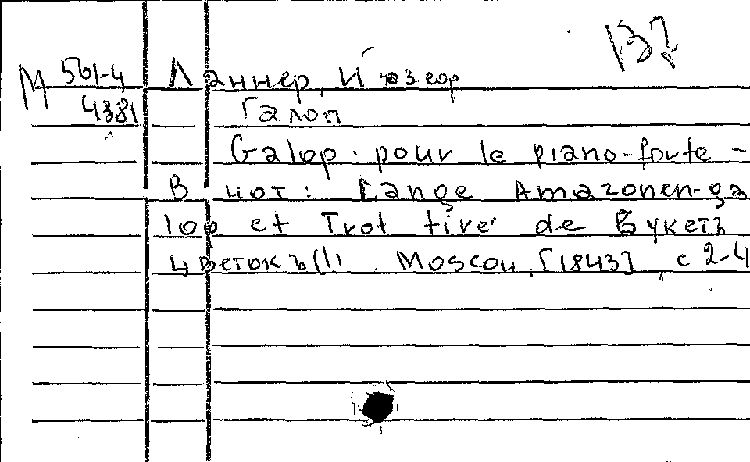 В7
М 561-4 Ланнер, Йозеф
4381 Галоп
Galop pour le piano-forte -
В нот: Lange Amazonen-ga
lop et Trot tiré de Букетъ
цветокъ(!) Moscou, [1843] с 2-4